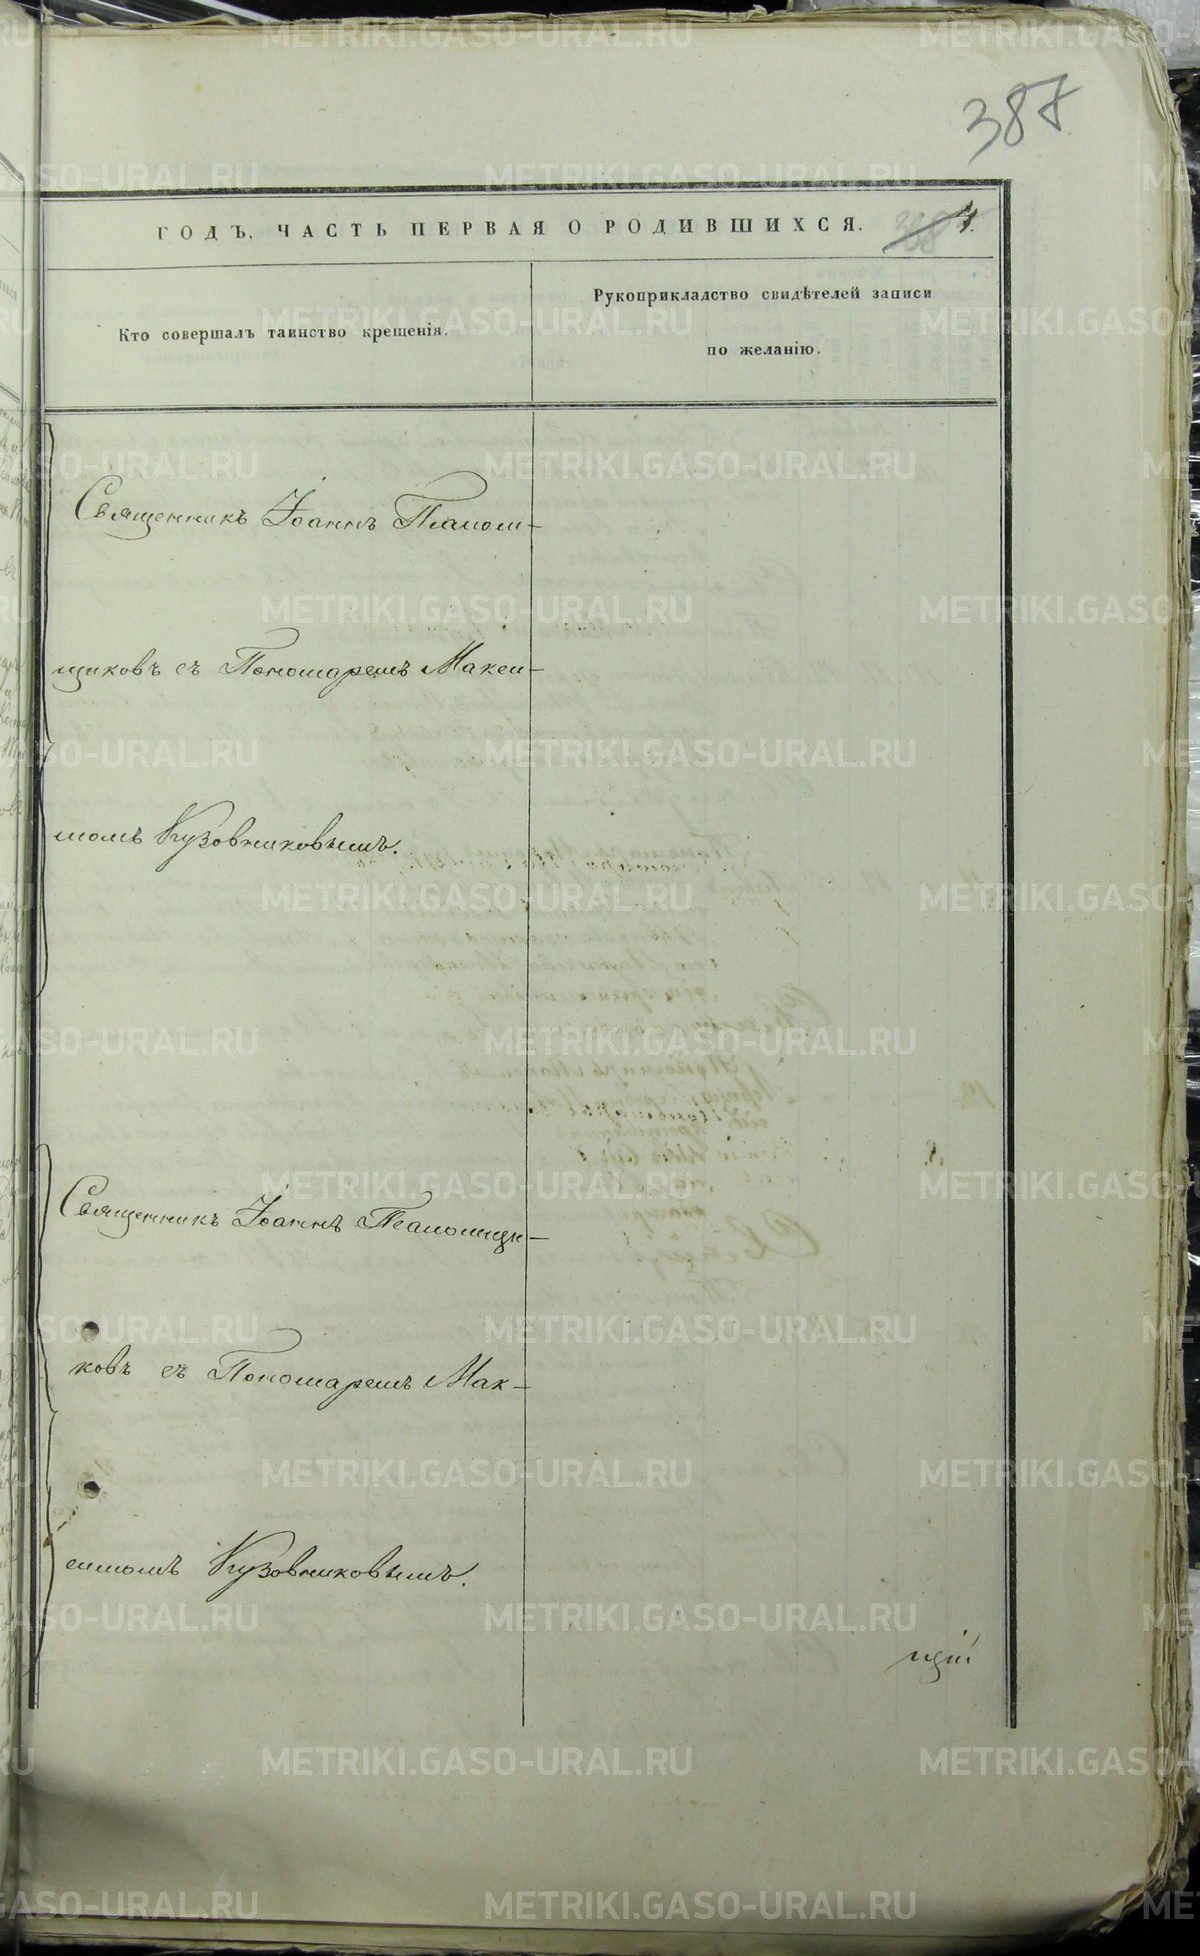 387
ГОДЪ, ЧАСТЬ ПЕРВАЯ О РОДИВШИХСЯ. 388 4.
Кто совершалъ таинство крещенія.
Рукоприкладство свидѣтелей записи
по желанію.
Священникъ Іоаннъ Пьяном-
щиковъ съ Пономаремъ Макси-
момъ Кузовниковымъ.
Священникъ Іоаннъ
ковъ съ Пономаремъ Мак-
симомъ Кузовниковымъ.
щій
METRIKI.GASO-URAL.RU